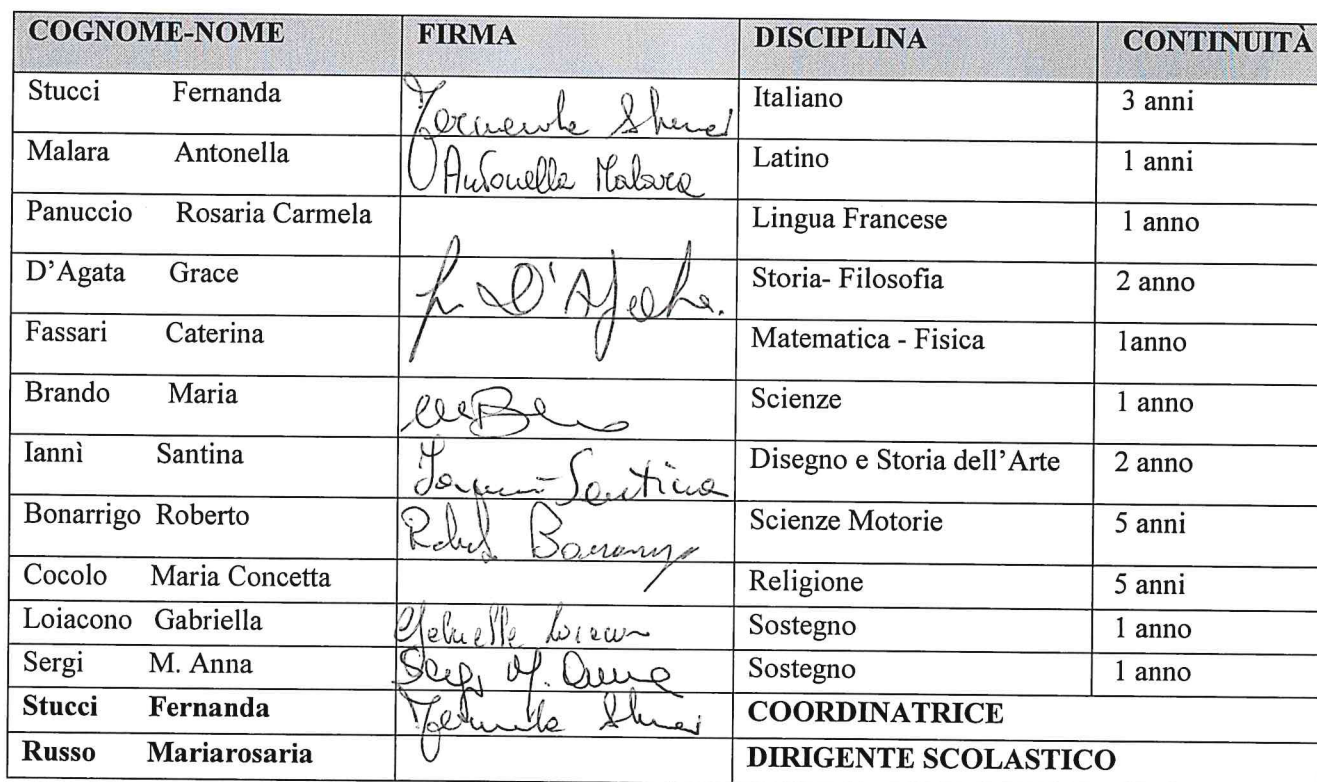 COGNOME-NOME FIRMA DISCIPLINA CONTINUITÀ
Stucci Fernanda Fernanda Stucci Italiano 3 anni
Malara Antonella Antonella Malara Latino 1 anni
Panuccio Rosaria Carmela Lingua Francese 1 anno
D'Agata Grace D'Agata Storia- Filosofia 2 anno
Fassari Caterina Matematica - Fisica 1anno
Brando Maria Scienze 1 anno
Iannì Santina Santina Disegno e Storia dell'Arte 2 anno
Bonarrigo Roberto Scienze Motorie 5 anni
Cocolo Maria Concetta Religione 5 anni
Loiacono Gabriella Gabriella Sostegno 1 anno
Sergi M. Anna Sergi M. Anna Sostegno 1 anno
Stucci Fernanda Fernanda Stucci COORDINATRICE
Russo Mariarosaria DIRIGENTE SCOLASTICO